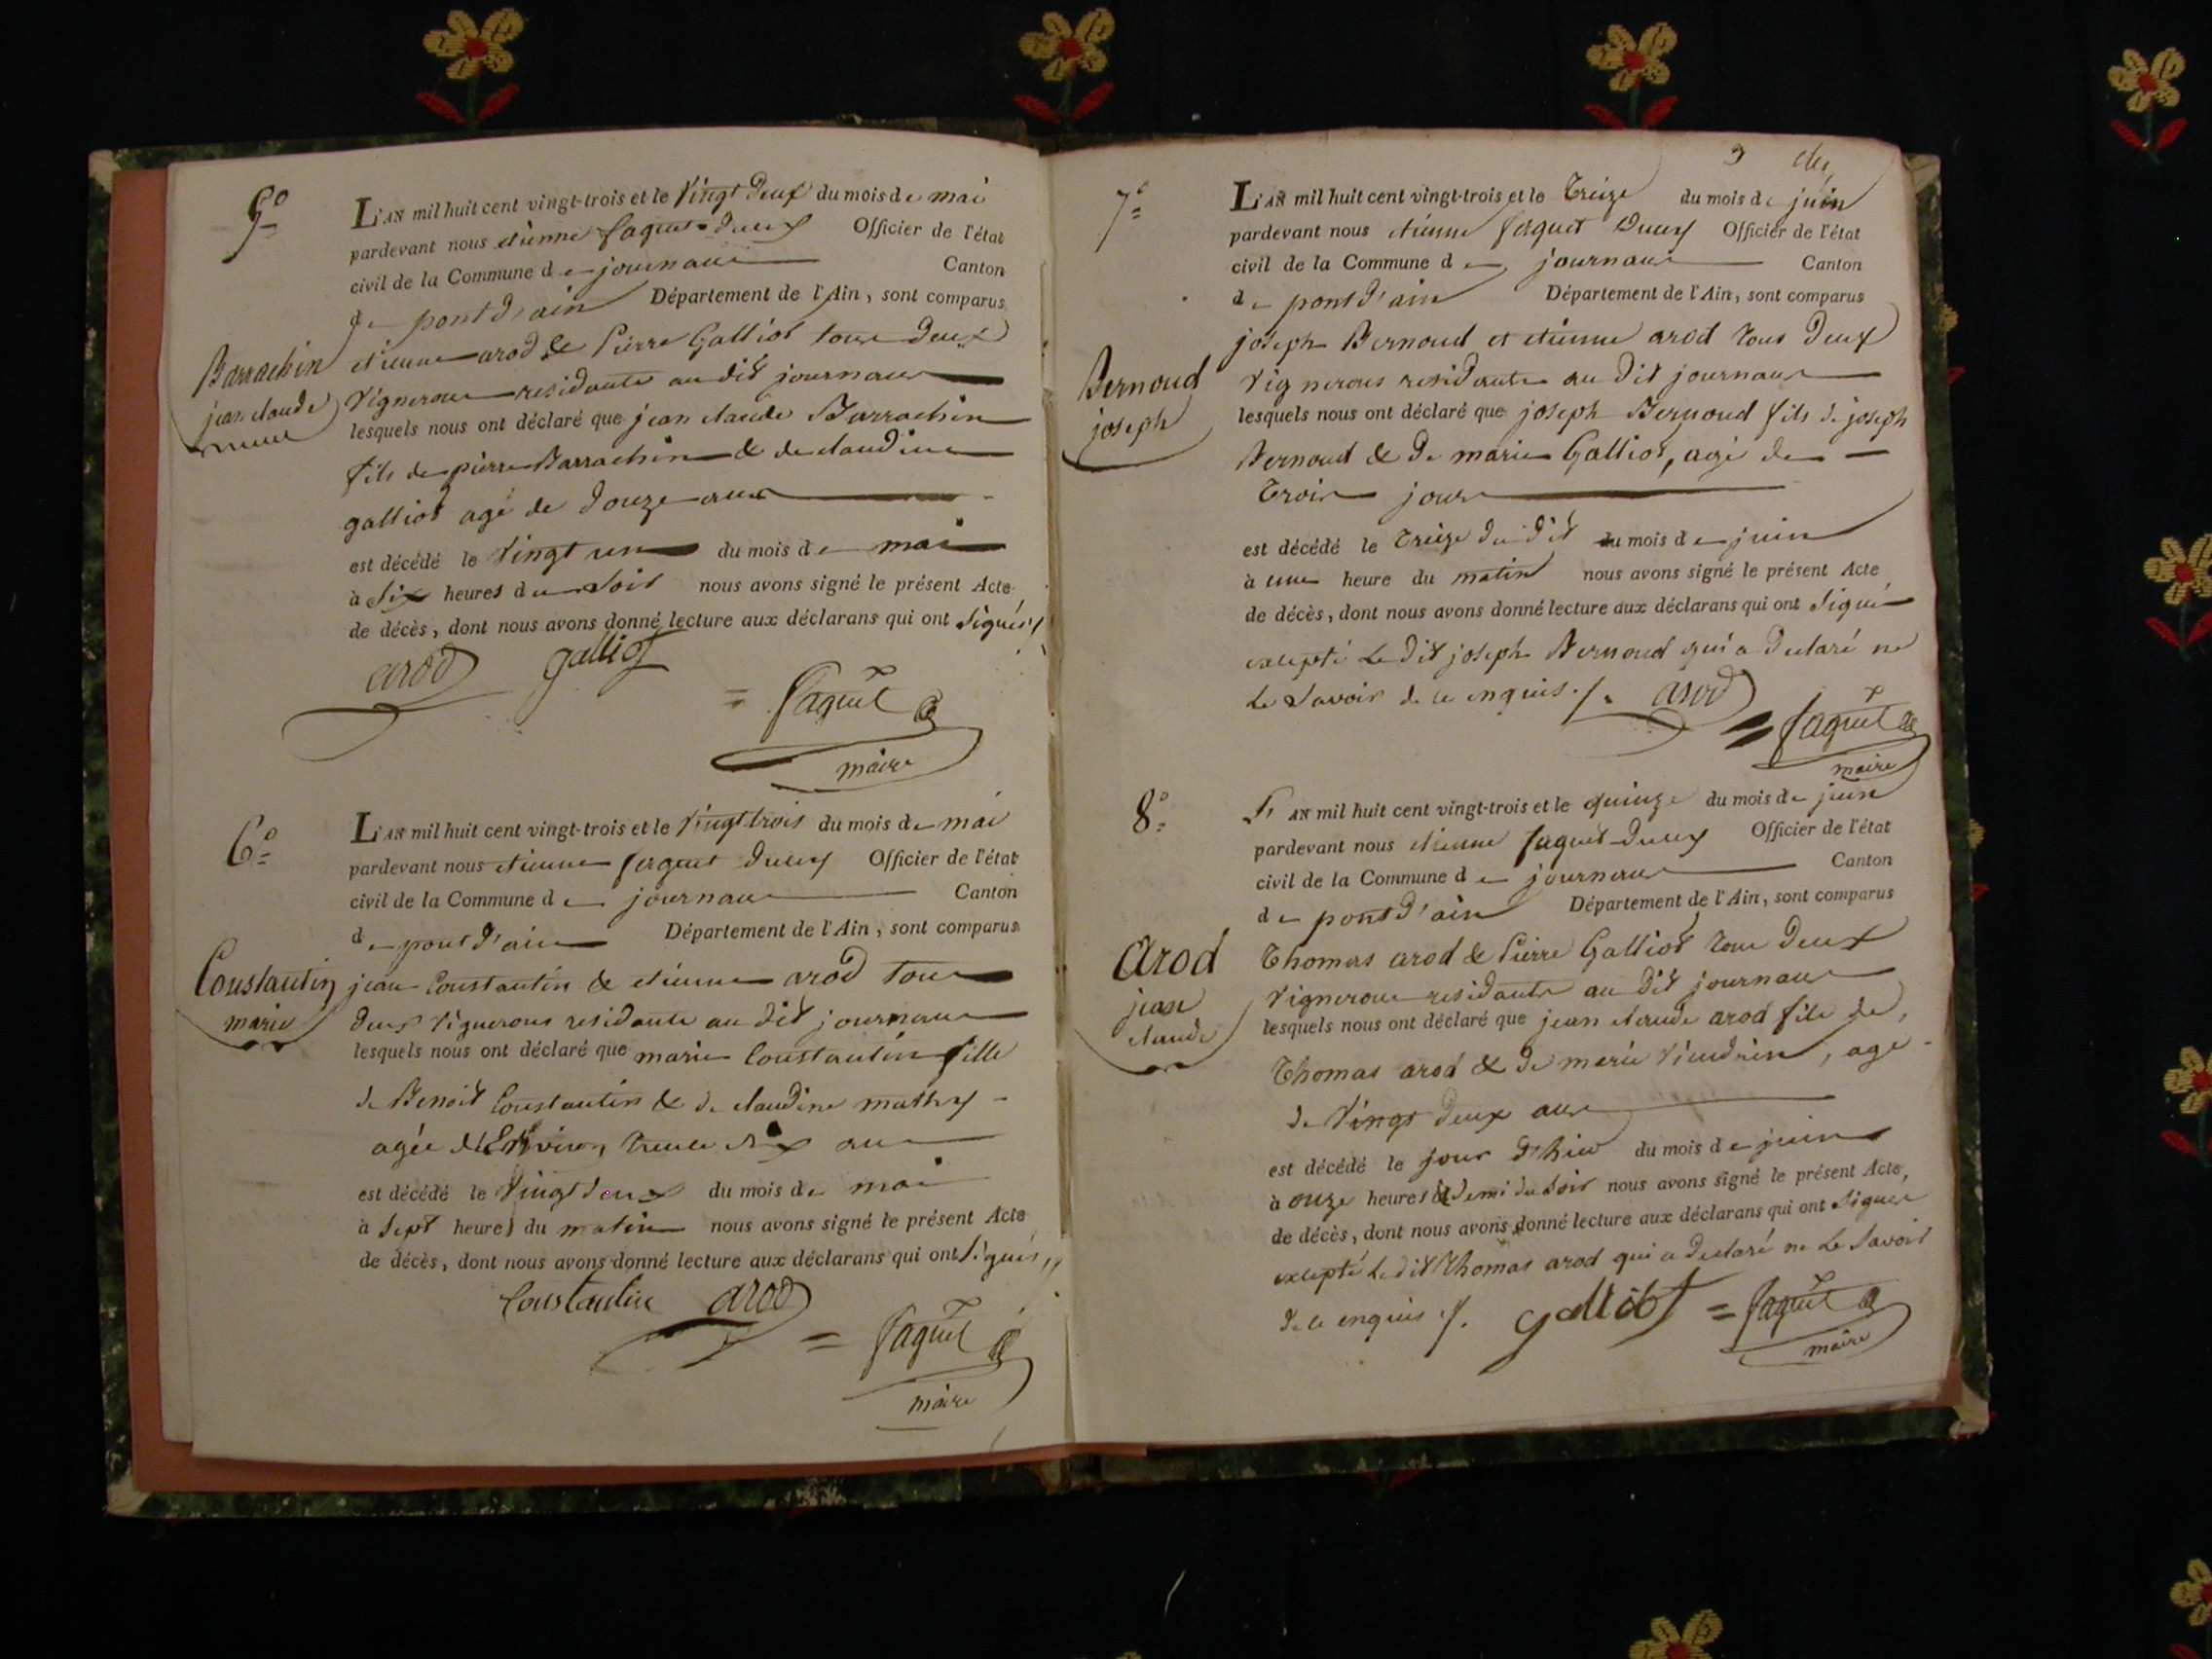 5º
L'AN mil huit cent vingt-trois et le Vingt deux du mois de mai
pardevant nous etienne faguet ducry Officier de l'état
civil de la Commune de journaux Canton
de pont d'ain Département de l'Ain, sont comparus
Barrachin
jean claude
etienne arod & Pierre Galliot tous deux
Vignerons residants au dit journaux
lesquels nous ont déclaré que jean claude Barrachin
fils de pierre Barrachin & de claudine
galliot agé de douze ans
est décédé le Vingt un du mois de mai
à Six heures du Soir nous avons signé le présent Acte
de décès, dont nous avons donné lecture aux déclarans qui ont Signés
arod galliot
faguet
maire
6º
L'AN mil huit cent vingt-trois et le Vingt trois du mois de mai
pardevant nous etienne faguet ducry Officier de l'état
civil de la Commune de journaux Canton
de pont d'ain Département de l'Ain, sont comparus
Constantin
marie
jean Constantin & etienne arod tous
deux Vignerons residants au dit journaux
lesquels nous ont déclaré que marie Constantin fille
de Benoit Constantin & de claudine mathey
agée d'Environ trente six ans
est décédé le Vingt deux du mois de mai
à Sept heures du matin nous avons signé le présent Acte
de décès, dont nous avons donné lecture aux déclarans qui ont Signés
Constantin arod
faguet
maire
7º
L'AN mil huit cent vingt-trois et le Treize du mois de juin
pardevant nous etienne faguet ducry Officier de l'état
civil de la Commune de journaux Canton
de pont d'ain Département de l'Ain, sont comparus
Bernoud
joseph
joseph Bernoud et etienne arod tous deux
Vignerons residants au dit journaux
lesquels nous ont déclaré que joseph Bernoud fils de joseph
Bernoud & de marie Galliot, agé de
Trois jours
est décédé le Treize du dit du mois de juin
à une heure du matin nous avons signé le présent Acte
de décès, dont nous avons donné lecture aux déclarans qui ont Signé
excepté Le dit joseph Bernoud qui a declaré ne
Le Savoir de ce enquis. arod
faguet
maire
8º
L'AN mil huit cent vingt-trois et le quinze du mois de juin
pardevant nous etienne faguet ducry Officier de l'état
civil de la Commune de journaux Canton
de pont d'ain Département de l'Ain, sont comparus
Arod
jean
claude
Thomas arod & Pierre Galliot tous deux
Vignerons residants au dit journaux
lesquels nous ont déclaré que jean claude arod fils de
Thomas arod & de marie Vieudrin, agé
de Vingt deux ans
est décédé le jour d'hier du mois de juin
à onze heures & demi du Soir nous avons signé le présent Acte,
de décès, dont nous avons donné lecture aux déclarans qui ont Signés
excepté Le dit Thomas arod qui a declaré ne Le Savoir
de ce enquis. galliot faguet
maire